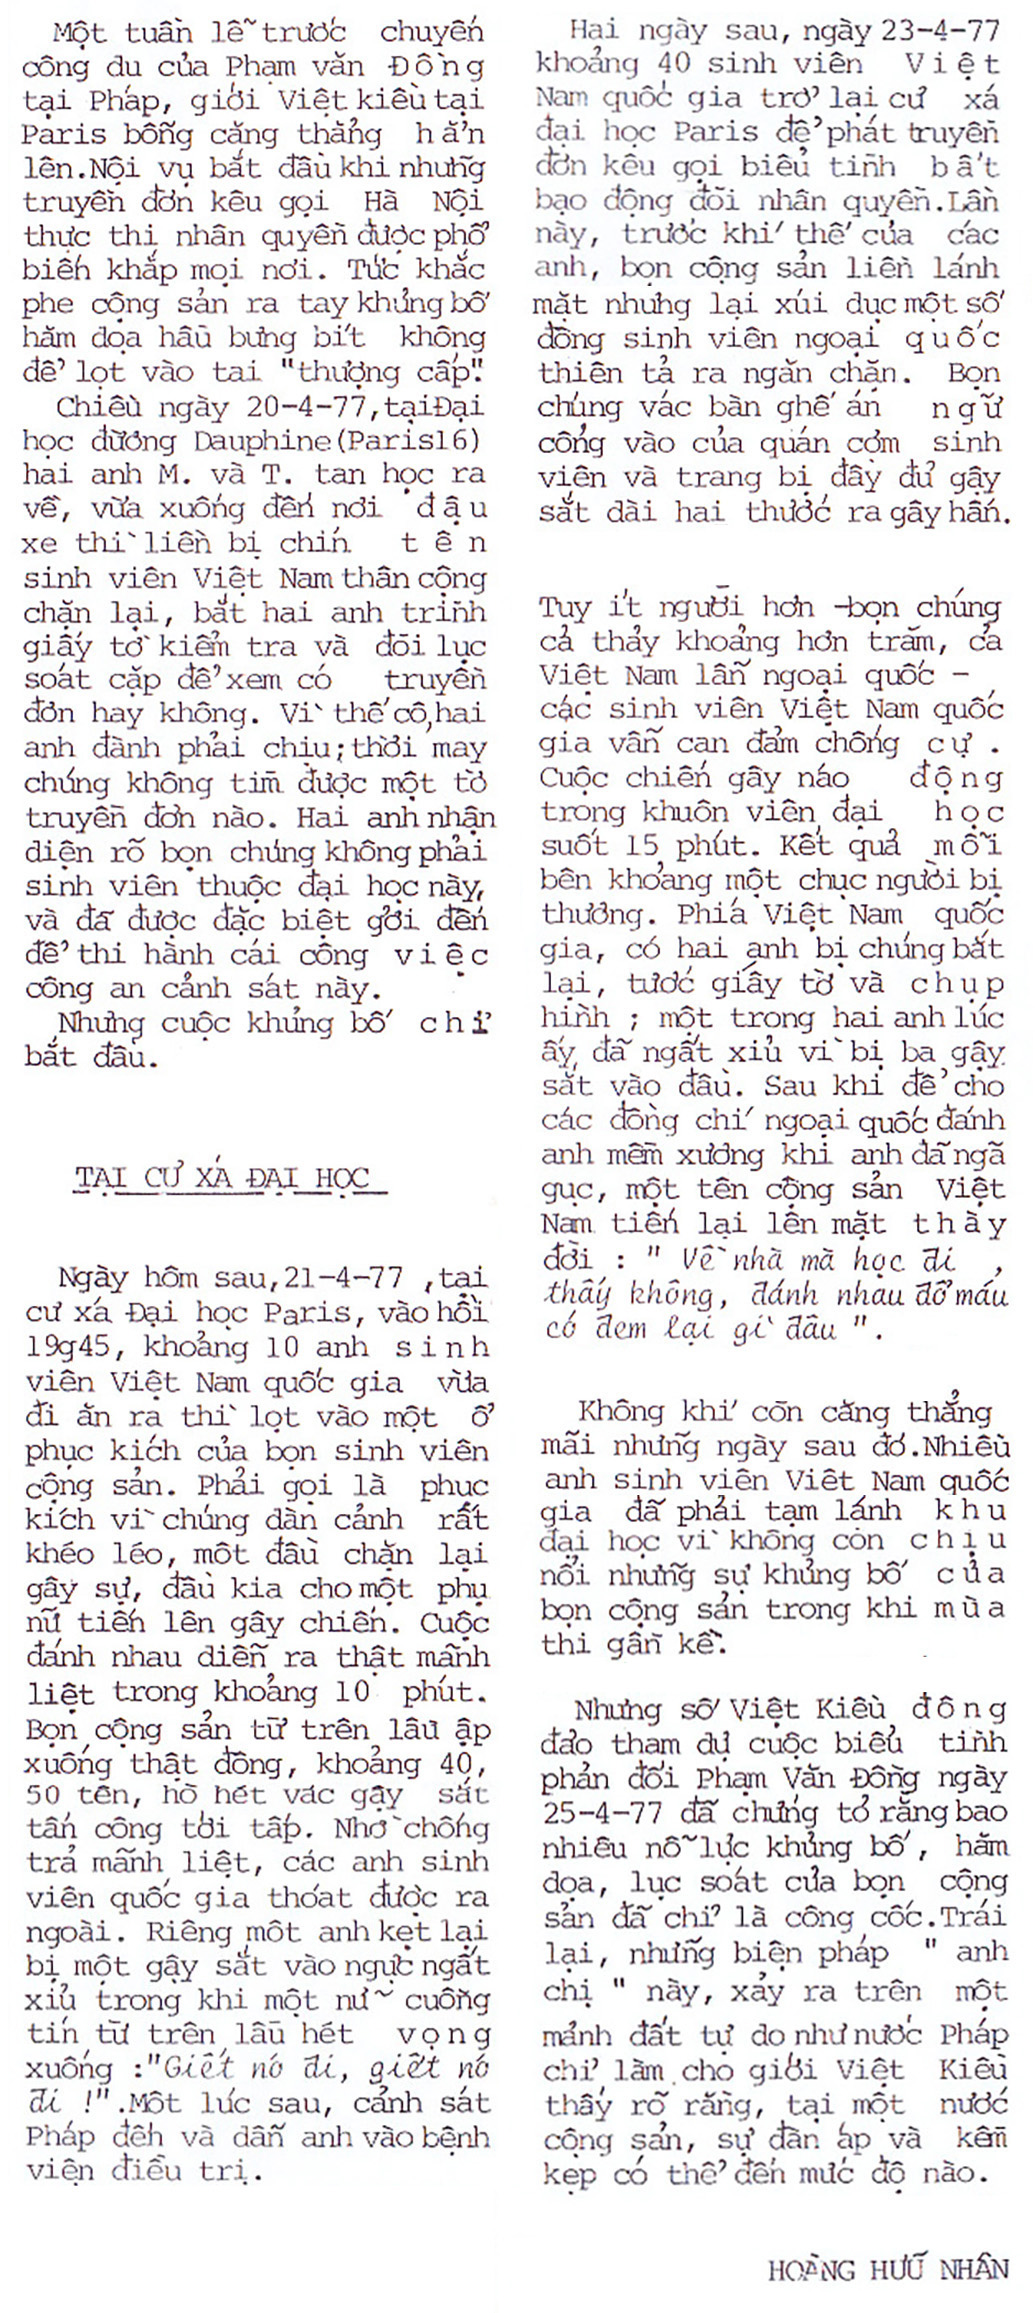 Một tuần lễ trước chuyến
công du của Phạm văn Đồng
tại Pháp, giới Việt kiều tại
Paris bỗng căng thẳng hẳn
lên.Nội vụ bắt đầu khi những
truyền đơn kêu gọi Hà Nội
thực thi nhân quyền được phổ
biến khắp mọi nơi. Tức khắc
phe cộng sản ra tay khủng bố
hăm dọa hầu bưng bít không
để lọt vào tai "thượng cấp".
Chiều ngày 20-4-77,tại Đại
học đường Dauphine(Paris16)
hai anh M. và T. tan học ra
về, vừa xuống đến nơi đậu
xe thì liền bị chín tên
sinh viên Việt Nam thân cộng
chặn lại, bắt hai anh trình
giấy tờ kiểm tra và đòi lục
soát cặp để xem có truyền
đơn hay không. Vì thế cô,hai
anh đành phải chịu;thời may
chúng không tìm được một tờ
truyền đơn nào. Hai anh nhận
diện rõ bọn chúng không phải
sinh viên thuộc đại học này,
và đã được đặc biệt gởi đến
để thi hành cái công việc
công an cảnh sát này.
Nhưng cuộc khủng bố chỉ
bắt đầu.
TẠI CƯ XÁ ĐẠI HỌC
Ngày hôm sau,21-4-77 ,tại
cư xá Đại học Paris, vào hồi
19g45, khoảng 10 anh sinh
viên Việt Nam quốc gia vừa
đi ăn ra thì lọt vào một ổ
phục kích của bọn sinh viên
cộng sản. Phải gọi là phục
kích vì chúng dàn cảnh rất
khéo léo, một đầu chặn lại
gây sự, đầu kia cho một phụ
nữ tiến lên gây chiến. Cuộc
đánh nhau diễn ra thật mãnh
liệt trong khoảng 10 phút.
Bọn cộng sản từ trên lầu ập
xuống thật đông, khoảng 40,
50 tên, hò hét vác gậy sắt
tấn công tới tấp. Nhờ chống
trả mãnh liệt, các anh sinh
viên quốc gia thoát được ra
ngoài. Riêng một anh kẹt lại
bị một gậy sắt vào ngực ngất
xỉu trong khi một nữ cuồng
tín từ trên lầu hét vọng
xuống :"Giết nó đi, giết nó
đi !".Một lúc sau, cảnh sát
Pháp đến và dẫn anh vào bệnh
viện điều trị.
Hai ngày sau, ngày 23-4-77
khoảng 40 sinh viên Việt
Nam quốc gia trở lại cư xá
đại học Paris để phát truyền
đơn kêu gọi biểu tình bất
bạo động đòi nhân quyền.Lần
này, trước khí thế của các
anh, bọn cộng sản liền lánh
mặt nhưng lại xúi dục một số
đông sinh viên ngoại quốc
thiên tả ra ngăn chặn. Bọn
chúng vác bàn ghế án ngữ
cổng vào của quán cơm sinh
viên và trang bị đầy đủ gậy
sắt dài hai thước ra gây hấn.
Tuy ít người hơn -bọn chúng
cả thảy khoảng hơn trăm, cả
Việt Nam lẫn ngoại quốc -
các sinh viên Việt Nam quốc
gia vẫn can đảm chống cự .
Cuộc chiến gây náo động
trong khuôn viên đại học
suốt 15 phút. Kết quả mỗi
bên khoảng một chục người bị
thương. Phiá Việt Nam quốc
gia, có hai anh bị chúng bắt
lại, tước giấy tờ và chụp
hình ; một trong hai anh lúc
ấy đã ngất xỉu vì bị ba gậy
sắt vào đầu. Sau khi để cho
các đồng chí ngoại quốc đánh
anh mềm xương khi anh đã ngã
gục, một tên cộng sản Việt
Nam tiến lại lên mặt thầy
đời : " Về nhà mà học đi ,
thấy không, đánh nhau đổ máu
có đem lại gì đâu ".
Không khí còn căng thẳng
mãi những ngày sau đó.Nhiều
anh sinh viên Việt Nam quốc
gia đã phải tạm lánh khu
đại học vì không còn chịu
nổi những sự khủng bố của
bọn cộng sản trong khi mùa
thi gần kề.
Nhưng số Việt Kiều đông
đảo tham dự cuộc biểu tình
phản đối Phạm Văn Đồng ngày
25-4-77 đã chứng tỏ rằng bao
nhiêu nỗ lực khủng bố, hăm
dọa, lục soát của bọn cộng
sản đã chỉ là công cốc.Trái
lại, những biện pháp " anh
chị " này, xảy ra trên một
mảnh đất tự do như nước Pháp
chỉ làm cho giới Việt Kiều
thấy rõ rằng, tại một nước
cộng sản, sự đàn áp và kềm
kẹp có thể đến mức độ nào.
HOÀNG HỮU NHÂN